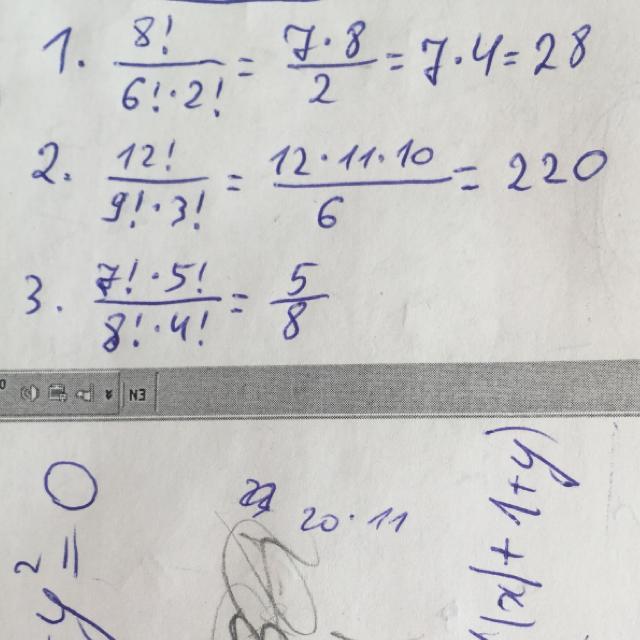 1. 8! / 6!·2! = 7·8 / 2 = 7·4 = 28
2. 12! / 9!·3! = 12·11·10 / 6 = 220
3. 7!·5! / 8!·4! = 5 / 8
EN
20·11
y² = 0
(x) + 1 + y)